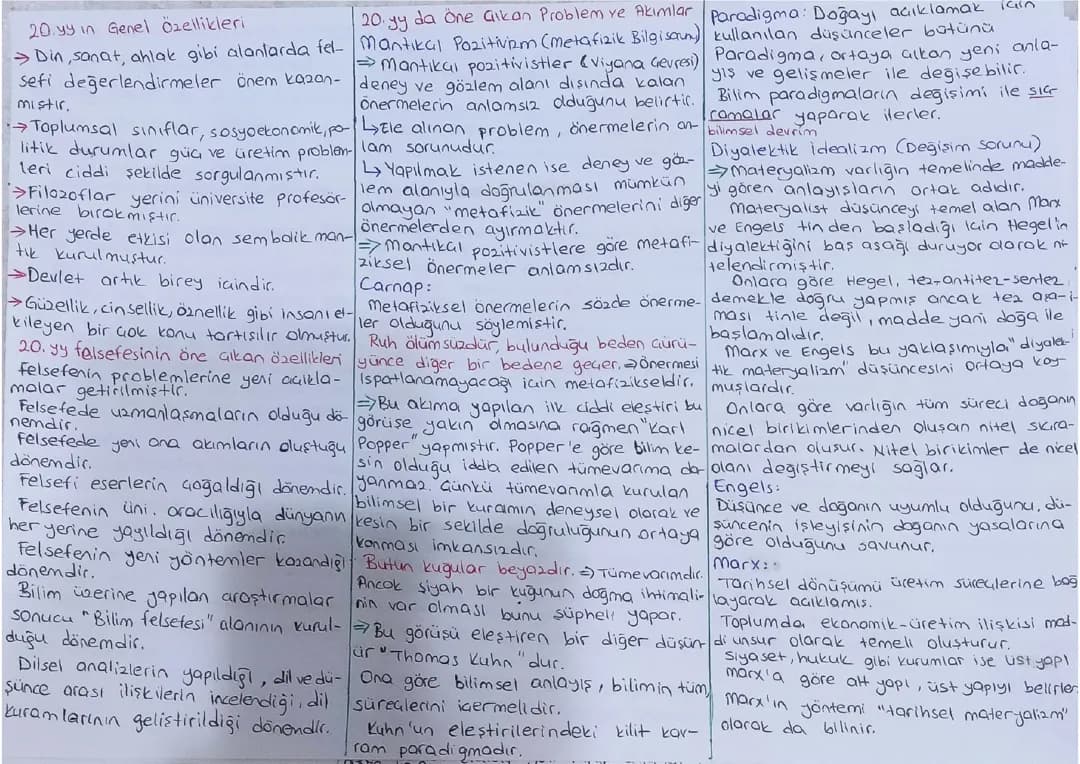 20.yy ın Genel Özellikleri
→ Din, sanat, ahlak gibi alanlarda fel-
sefi değerlendirmeler önem kazan-
mıştır.
→ Toplumsal sınıflar, sosyoekonomik, po-
litik durumlar güç ve üretim problem-
leri ciddi şekilde sorgulanmıştır.
→ Filozoflar yerini üniversite profesör-
lerine bırakmıştır.
→ Her yerde etkisi olan sembolik man-
tık kurulmuştur.
→ Devlet artık birey içindir.
→ Güzellik, cinsellik, öznellik gibi insanı et-
kileyen bir çok konu tartışılır olmuştur.
20. yy felsefesinin öne çıkan özellikleri
felsefenin problemlerine yeni açıkla-
malar getirilmiştir.
Felsefede uzmanlaşmaların olduğu dö-
nemdir.
Felsefede yeni ana akımların oluştuğu
dönemdir.
Felsefi eserlerin çoğaldığı dönemdir.
Felsefenin üni. aracılığıyla dünyanın
her yerine yayıldığı dönemdir.
Felsefenin yeni yöntemler kazandığı
dönemdir.
Bilim üzerine yapılan araştırmalar
sonucu "Bilim felsefesi" alanının kurul-
duğu dönemdir.
Dilsel analizlerin yapıldığı, dil ve dü-
şünce arası ilişkilerin incelendiği, dil
kuramlarının geliştirildiği dönemdir.
20.yy da Öne Çıkan Problem ve Akımlar
Mantıkçı Pozitivizm (Metafizik Bilgi Sorunu)
⇒ Mantıkçı pozitivistler (Viyana Çevresi)
deney ve gözlem alanı dışında kalan
önermelerin anlamsız olduğunu belirtir.
↳ Ele alınan problem, önermelerin an-
lam sorunudur.
↳ Yapılmak istenen ise deney ve göz-
lem alanıyla doğrulanması mümkün
olmayan "metafizik" önermelerini diğer
önermelerden ayırmaktır.
⇒ Mantıkçı pozitivistlere göre metafi-
ziksel önermeler anlamsızdır.
Carnap:
Metafiziksel önermelerin sözde önerme-
ler olduğunu söylemiştir.
Ruh ölümsüzdür, bulunduğu beden çürü-
yünce diğer bir bedene geçer. ⇒ Önermesi
ispatlanamayacağı için metafizikseldir.
⇒ Bu akıma yapılan ilk ciddi eleştiri bu
görüşe yakın olmasına rağmen "Karl
Popper" yapmıştır. Popper'e göre bilim ke-
sin olduğu iddia edilen tümevarıma da-
yanmaz. Çünkü tümevarımla kurulan
bilimsel bir kuramın deneysel olarak ve
kesin bir şekilde doğruluğunun ortaya
konması imkansızdır.
Bütün kuğular beyazdır. ⇒ Tümevarımdır.
Ancak siyah bir kuğunun doğma ihtimali-
nin var olması bunu şüpheli yapar.
⇒ Bu görüşü eleştiren bir diğer düşün-
ür "Thomas Kuhn" dur.
Ona göre bilimsel anlayış, bilimin tüm
süreçlerini içermelidir.
Kuhn'un eleştirilerindeki kilit kav-
ram paradigmadır.
Paradigma: Doğayı açıklamak için
kullanılan düşünceler bütünü
Paradigma, ortaya çıkan yeni anla-
yış ve gelişmeler ile değişebilir.
Bilim paradigmaların değişimi ile sıç-
ramalar yaparak ilerler.
bilimsel devrim
Diyalektik idealizm (Değişim sorunu)
⇒ Materyalizm varlığın temelinde madde-
yi gören anlayışların ortak adıdır.
Materyalist düşünceyi temel alan Marx
ve Engels tinden başladığı için Hegel'in
diyalektiğini baş aşağı duruyor olarak ni-
telendirmiştir.
Onlara göre Hegel, tez-antitez-sentez
demekle doğru yapmış ancak tez ara-ı-
ması tinle değil, madde yani doğa ile
başlamalıdır.
Marx ve Engels bu yaklaşımıyla "diyalek-
tik materyalizm" düşüncesini ortaya koy-
muşlardır.
Onlara göre varlığın tüm süreci doğanın
nicel birikimlerinden oluşan nitel sıçra-
malardan oluşur. Nitel birikimler de nicel
olanı değiştirmeyi sağlar.
Engels:
Düşünce ve doğanın uyumlu olduğunu, dü-
şüncenin işleyişinin doğanın yasalarına
göre olduğunu savunur.
Marx:
Tarihsel dönüşümü üretim süreçlerine bağ-
layarak açıklamış.
Toplumda ekonomik-üretim ilişkisi mad-
di unsur olarak temeli oluşturur.
Siyaset, hukuk gibi kurumlar ise üst yapı
Marx'a göre alt yapı, üst yapıyı belirler.
Marx'ın yöntemi "tarihsel materyalizm"
olarak da bilinir.